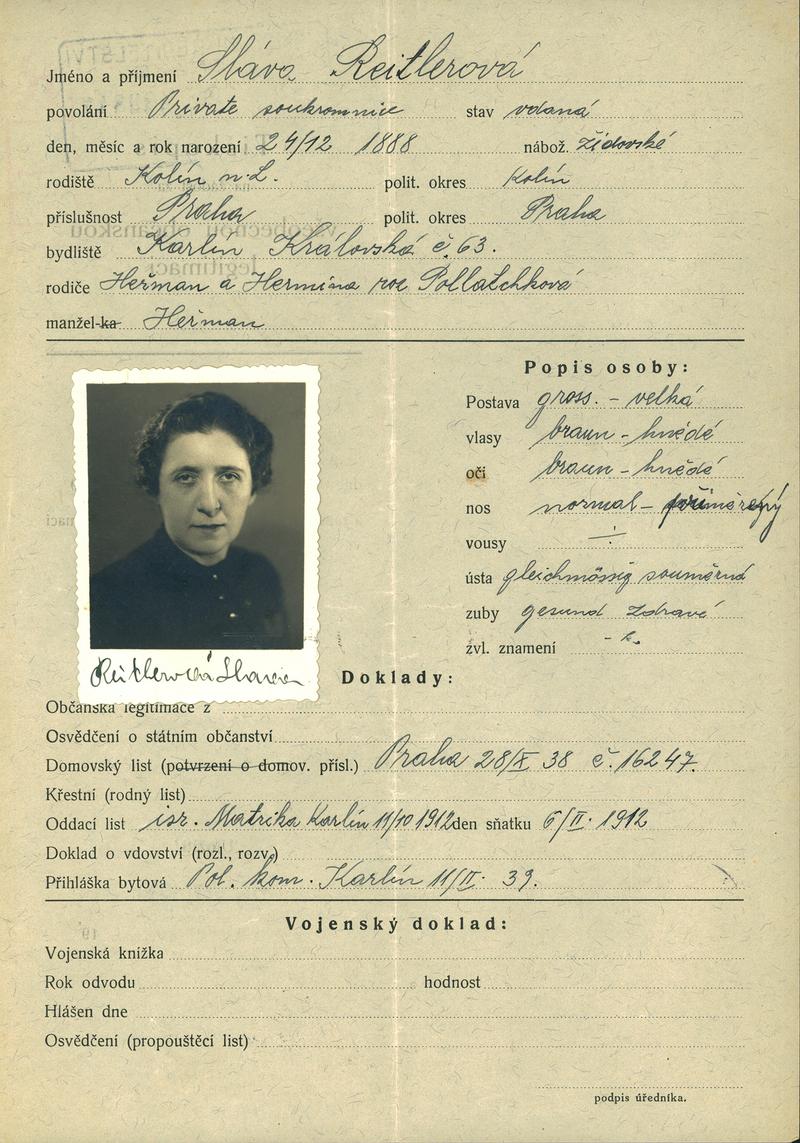 Jméno a příjmení Sláva Reitlerová
povolání Private soukromnice stav vdaná
den, měsíc a rok narození 24/12 1888 nábož. židovské
rodiště Kolín n.L. polit. okres Kolín
příslušnost Praha polit. okres Praha
bydliště Karlín Královská č. 63.
rodiče Heřman a Hermina roz Pollatchková
manžel-ka Heřman
Popis osoby:
Postava gross. - velká
vlasy braun - hnědé
oči braun - hnědé
nos normal - přiměřený
vousy ÷
ústa gleichmässig souměrná
zuby gesund zdravé
zvl. znamení
Reitlerová Slava
Doklady:
Občanská legitimace z
Osvědčení o státním občanství
Domovský list (potvrzení o domov. přísl.) Praha 28/IX 38 č. 16247.
Křestní (rodný list)
Oddací list isr. Matrika Karlín 11/10 1912 den sňatku 6/II. 1912
Doklad o vdovství (rozl., rozv.)
Přihláška bytová Pol. kom. Karlín 11/II. 39.
Vojenský doklad:
Vojenská knížka
Rok odvodu hodnost
Hlášen dne
Osvědčení (propouštěcí list)
podpis úředníka.